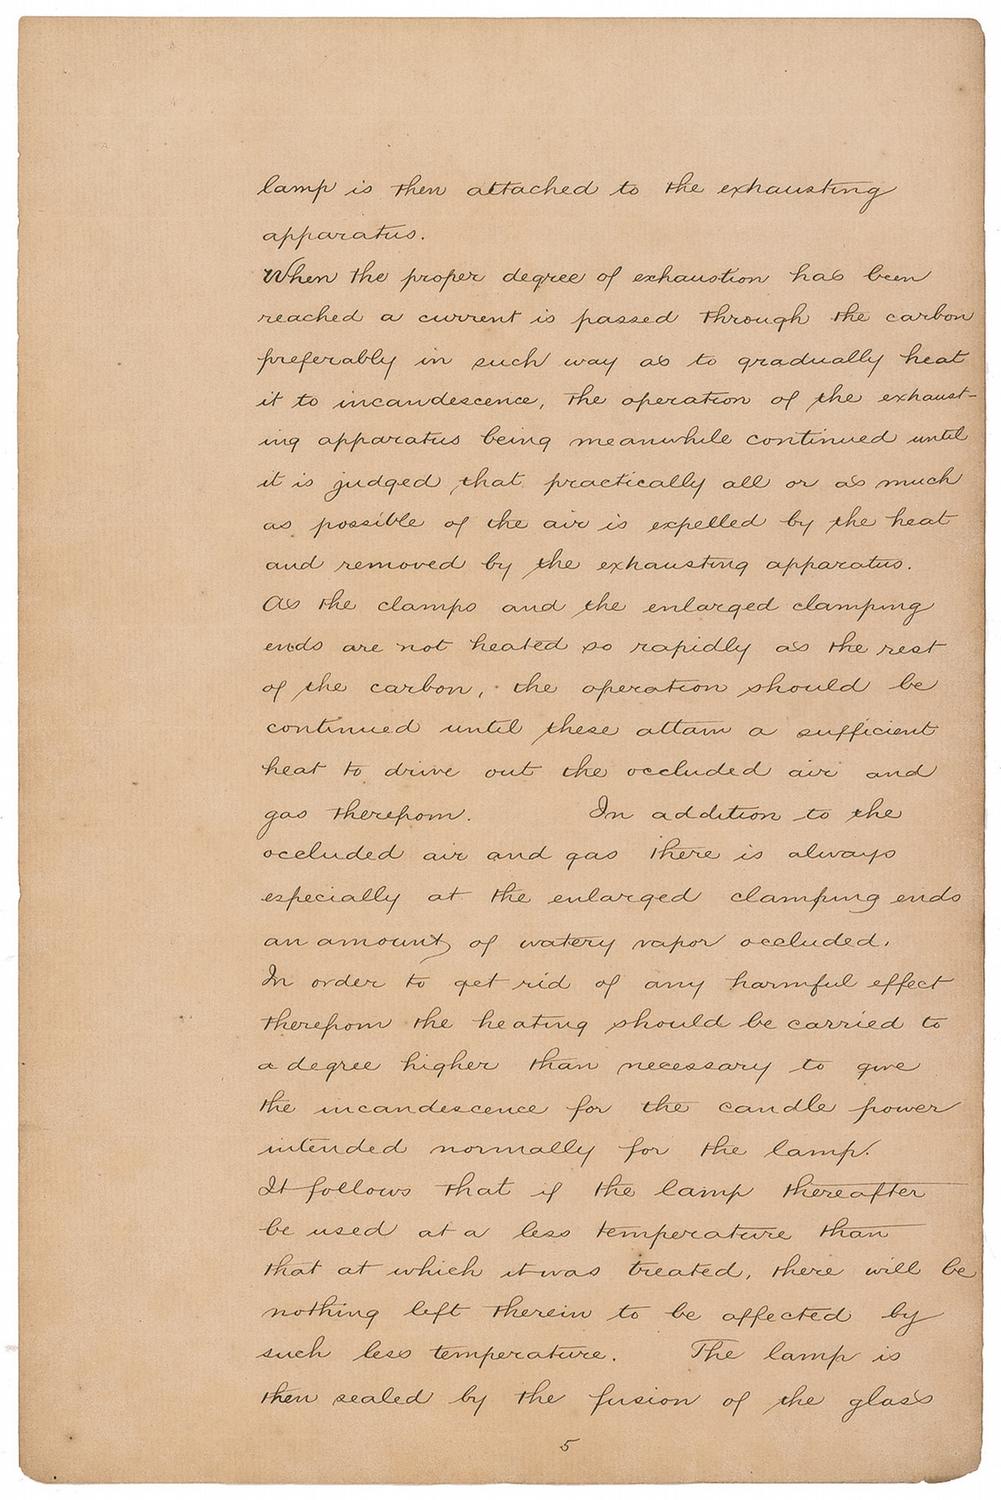 lamp is then attached to the exhausting
apparatus.
When the proper degree of exhaustion has been
reached a current is passed through the carbon
preferably in such way as to gradually heat
it to incandescence, the operation of the exhaust-
ing apparatus being meanwhile continued until
it is judged that practically all or as much
as possible of the air is expelled by the heat
and removed by the exhausting apparatus.
As the clamps and the enlarged clamping
ends are not heated so rapidly as the rest
of the carbon, the operation should be
continued until these attain a sufficient
heat to drive out the occluded air and
gas therefrom. In addition to the
occluded air and gas there is always
especially at the enlarged clamping ends
an amount, of watery vapor occluded.
In order to get rid of any harmful effect
therefrom the heating should be carried to
a degree higher than necessary to give
the incandescence for the candle power
intended normally for the lamp.
It follows that if the lamp thereafter
be used at a less temperature than
that at which it was treated, there will be
nothing left therein to be affected by
such less temperature. The lamp is
then sealed by the fusion of the glass
5